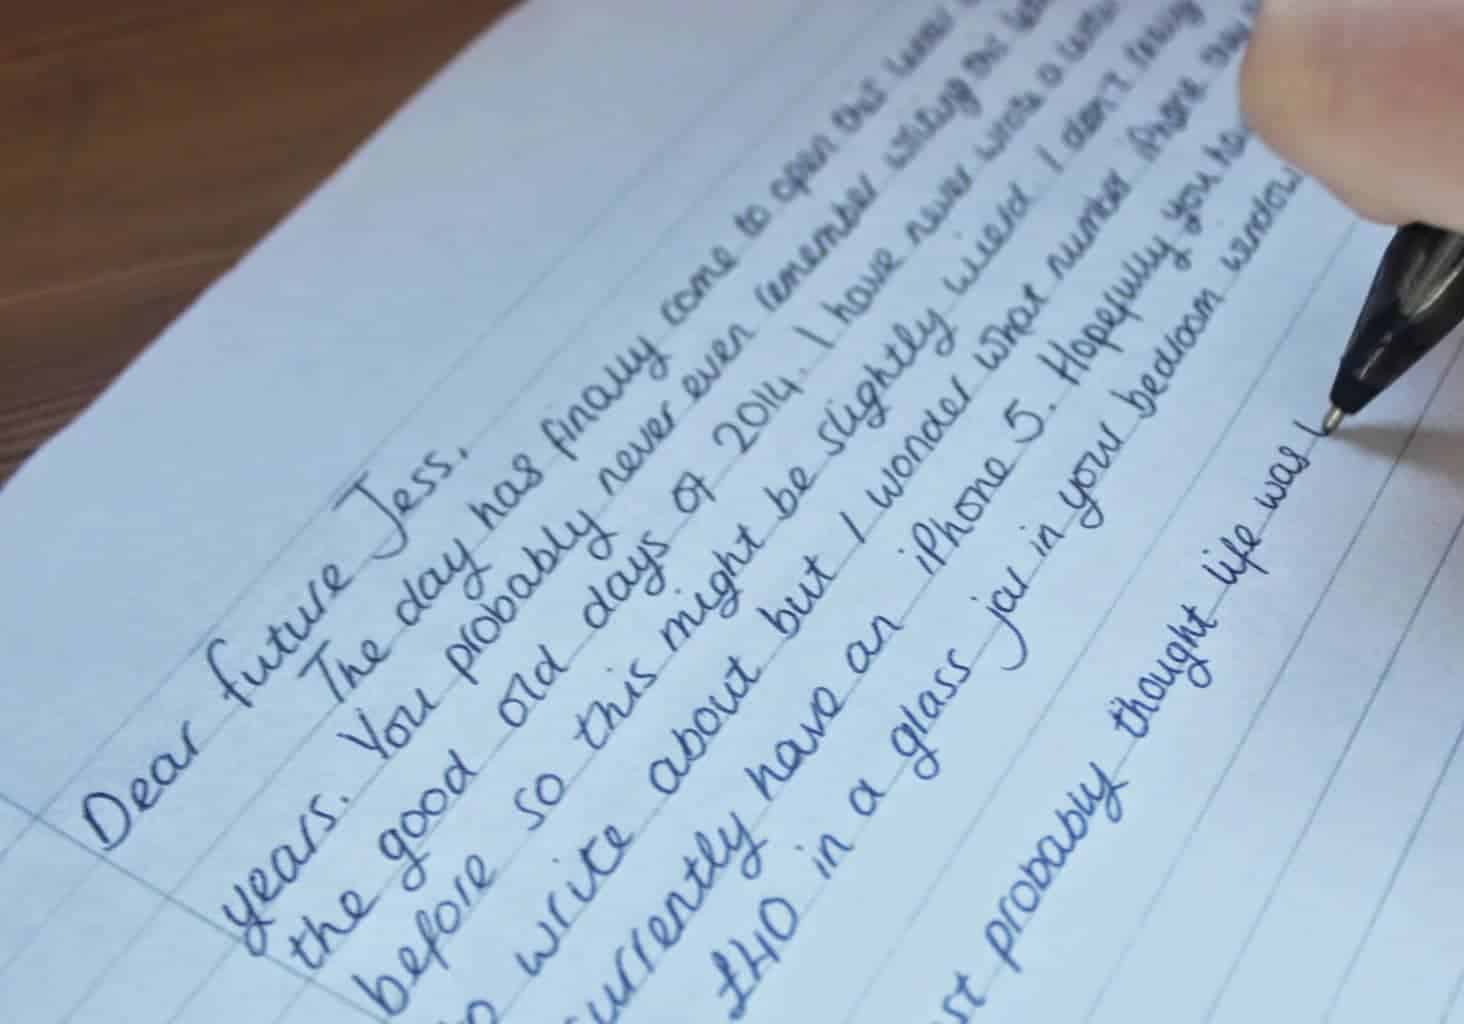 Dear future Jess,
The day has finally come to open this
years. You probably never even remember writing this
the good old days of 2014. I have never wrote a
before so this might be slightly wierd. I don't
write about but I wonder what number iPhone
currently have an iPhone 5. Hopefully you
£40 in a glass jar in your bedroom window
probably thought life was